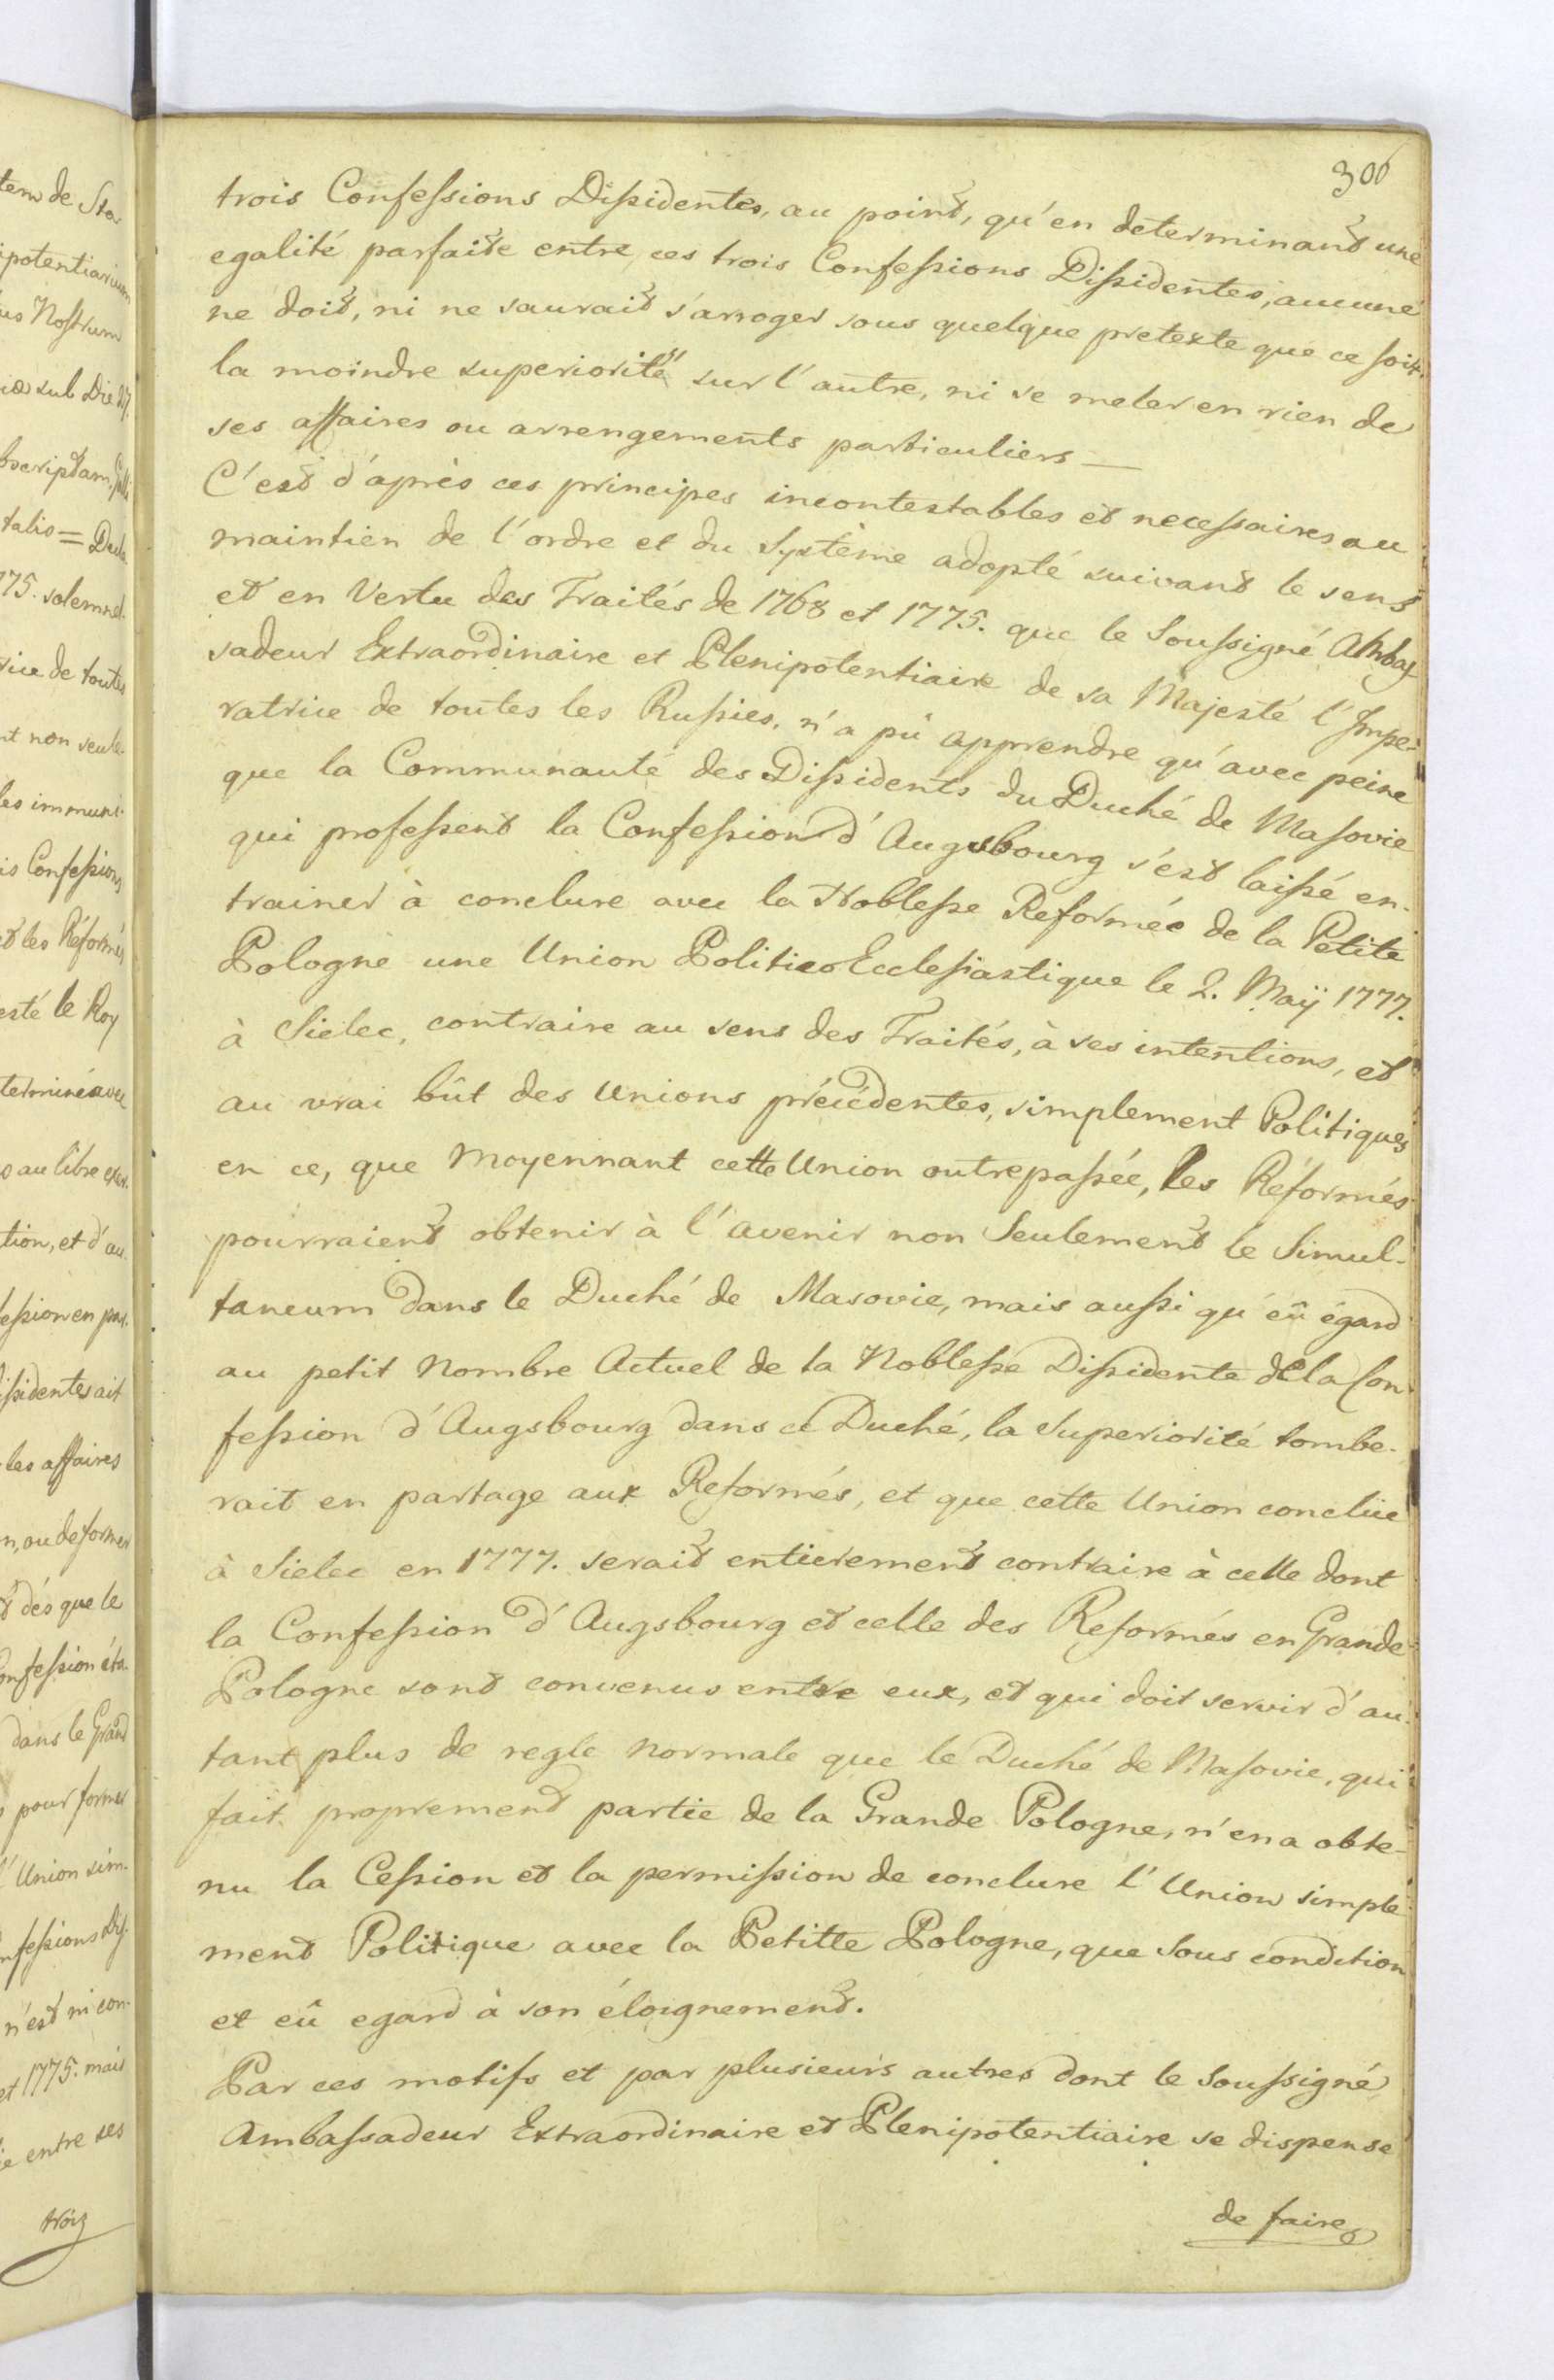 300
trois Confessions Dissidentes, au point, qu'en determinant une
egalité parfaite entre ces trois Confessions Dissidentes, aucune
ne doit, ni ne saurait s'arroger sous quelque pretexte que ce soit
la moindre superiorité sur l'autre, ni se meler en rien de
ses affaires ou arrengements particuliers —
C'est d'après ces principes incontestables et necessaires au
maintien de l'ordre et du Système adopté suivant le sens
et en Vertu des Traités de 1768 et 1775. que le Soussigné Ambas-
sadeur Extraordinaire et Plenipotentiaire de sa Majesté l'Impe-
ratrice de toutes les Russies, n'a pû apprendre qu'avec peine
que la Communauté des Dissidents du Duché de Masovie
qui professent la Confession d'Augsbourg s'est laissé en-
trainer à conclure avec la Noblesse Reformée de la Petite
Pologne une Union Politico Ecclesiastique le 2. Maÿ 1777.
à Sielec, contraire au sens des Traités, à ses intentions, et
au vrai bût des Unions précédentes, simplement Politiques
en ce, que moyennant cette Union outrepassée, les Réformés
pourraient obtenir à l'avenir non Seulement le Simul-
taneum dans le Duché de Masovie, mais aussi qu'eû égard
au petit Nombre Actuel de la Noblesse Dissidente de la Con
fession d'Augsbourg dans ce Duché, la Superiorité tombe-
rait en partage aux Reformés, et que cette Union conclüe
à Sielec en 1777. serait entierement contraire à celle dont
la Confession d'Augsbourg et celle des Reformés en Grande
Pologne sont convenus entre eux, et qui doit servir d'au-
tant plus de regle normale que le Duché de Masovie, qui
fait proprement partie de la Grande Pologne, n'en a obte-
nu la Cession et la permission de conclure l'Union simple
ment Politique avec la Petitte Pologne, que Sous condition
et eû egard à son éloignement.
Par ces motifs et par plusieurs autres dont le Soussigné
Ambassadeur Extraordinaire et Plenipotentiaire se dispense
de faire